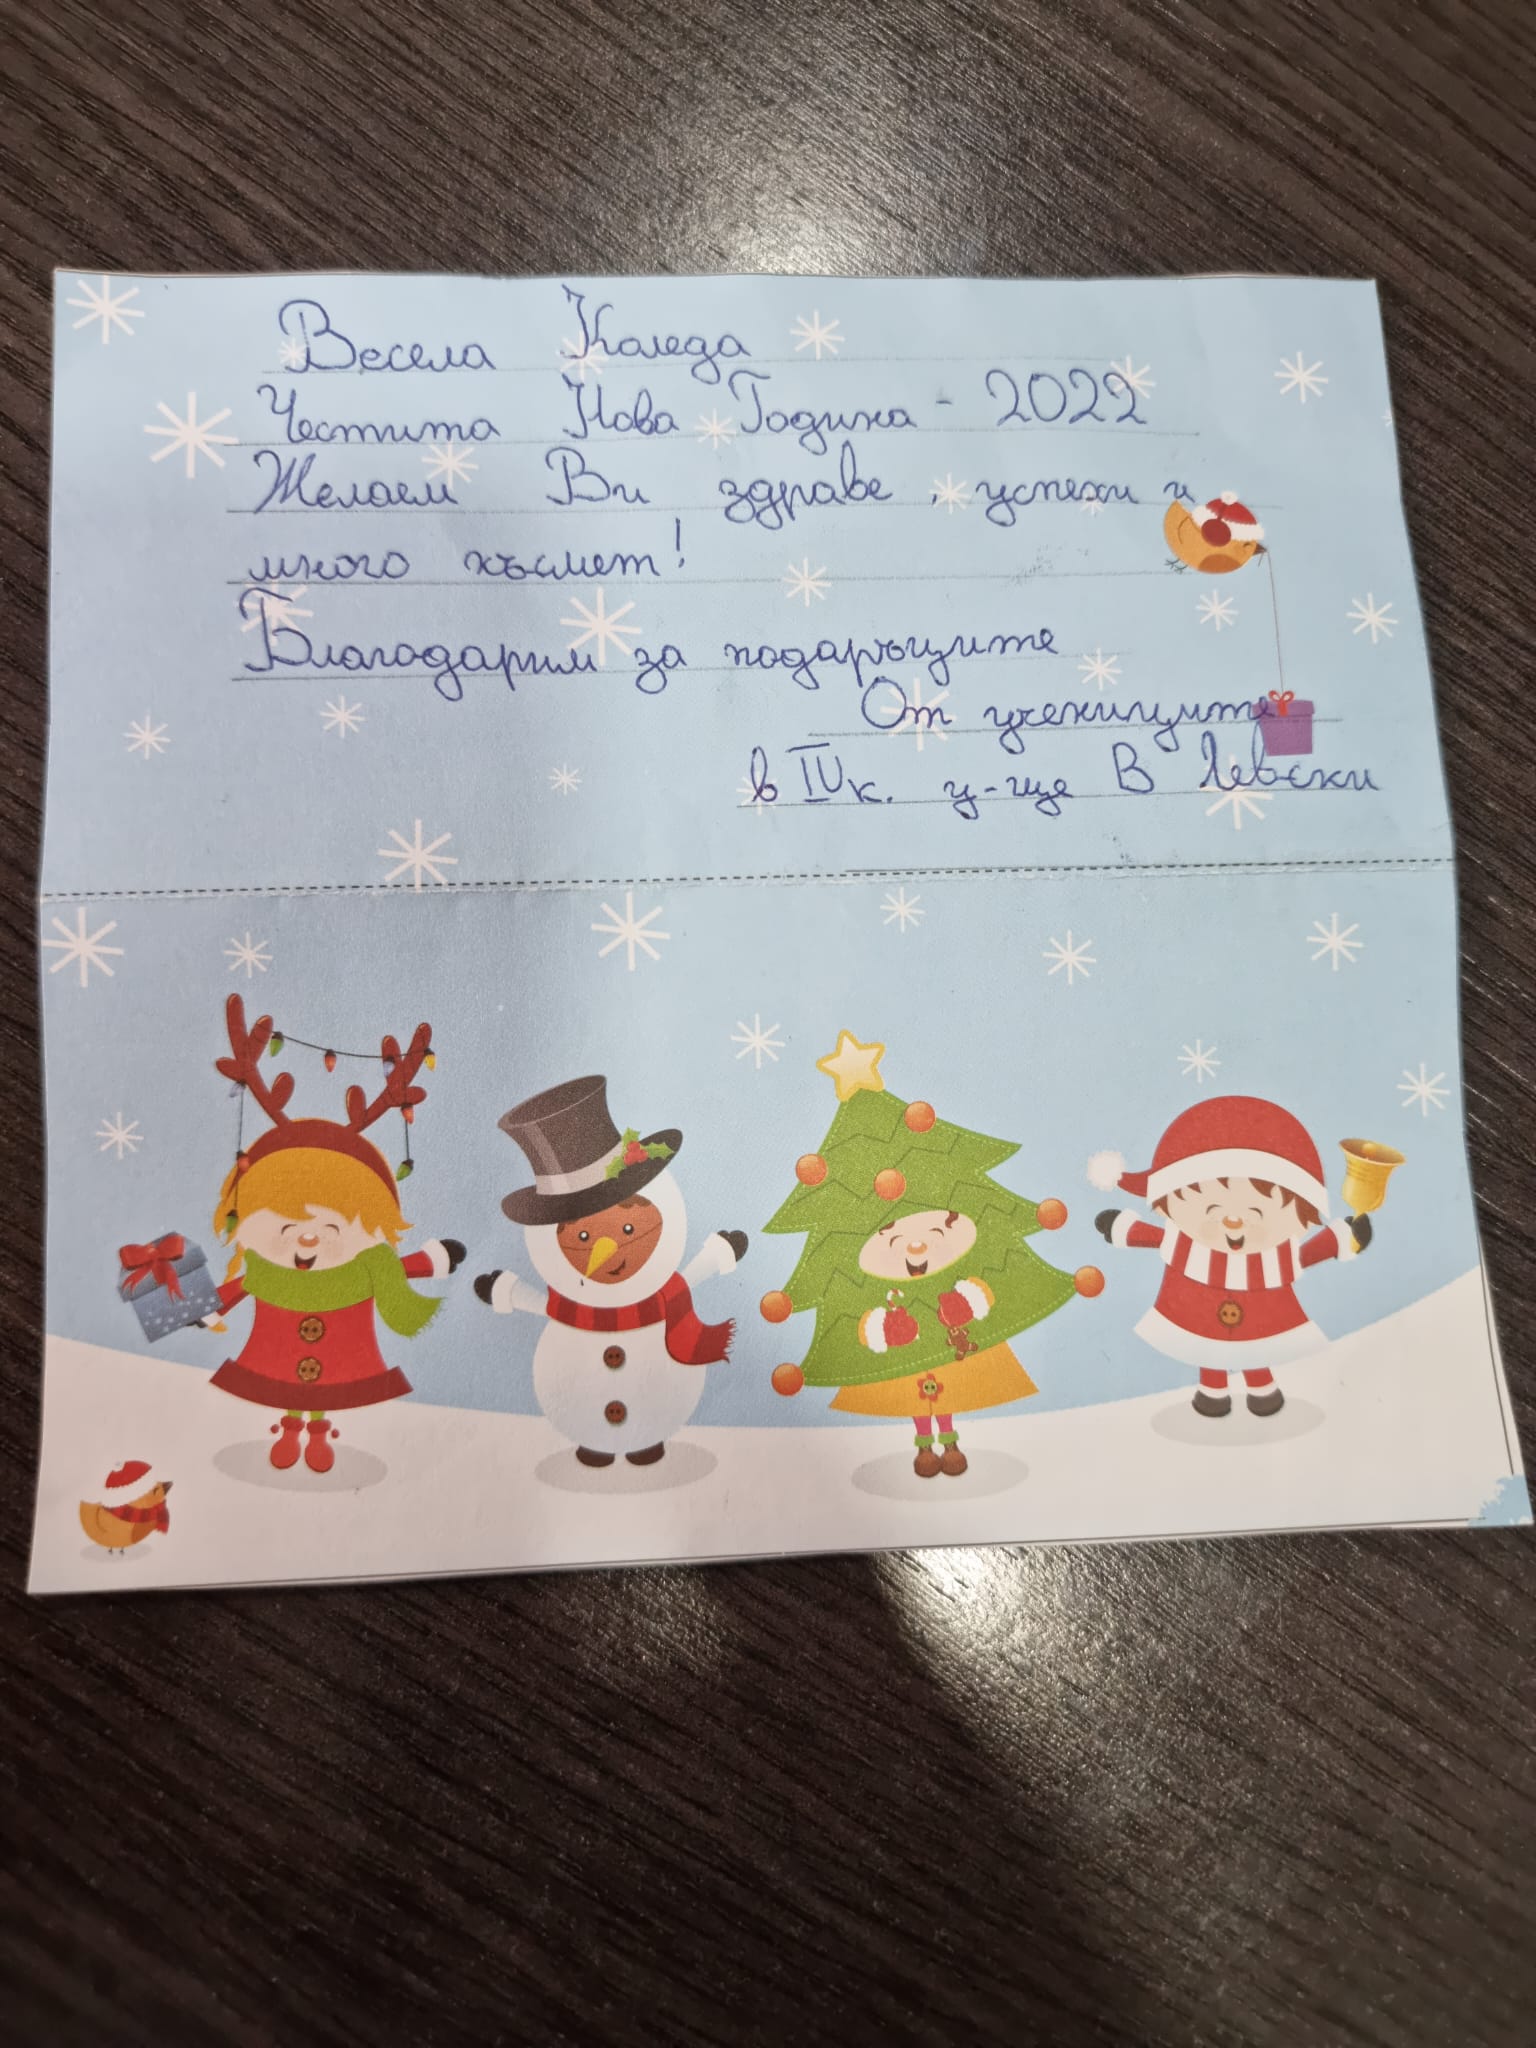 Весела Коледа
Честита Нова Година - 2022
Желаем Ви здраве, успехи и
много късмет!
Благодарим за подаръците
От учениците
в IV к. у-ще В Левски